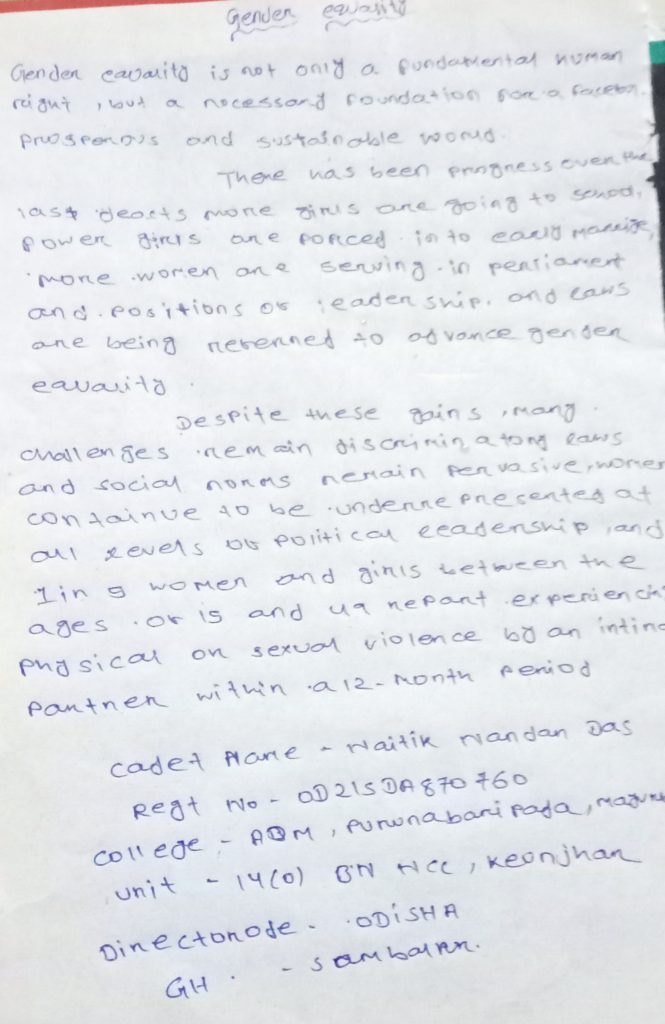 Gender equality
Gender equality is not only a fundamental human
right, but a necessary foundation for a
prosperous and sustainable world.
There has been progress over the
last decats more girls are going to school,
power girls are forced into early
more women are serving in
and positions of leadership. and laws
are being referred to advance gender
equality.
Despite these gains, many
challenges remain discriminatory laws
and social norms remain pervasive, women
containue to be underrepresented at
all levels of political leadership, and
1 in 5 women and girls between the
ages of 15 and 49 report experiencin
physical or sexual violence by an intima
partner within a 12-month period
cadet Name - Naitik Nandan Das
Regt No - OD21SDA870760
college - ADM, Purunabaripada,
unit - 14(O) BN NCC, Keonjhar
Directorate - ODISHA
GH -